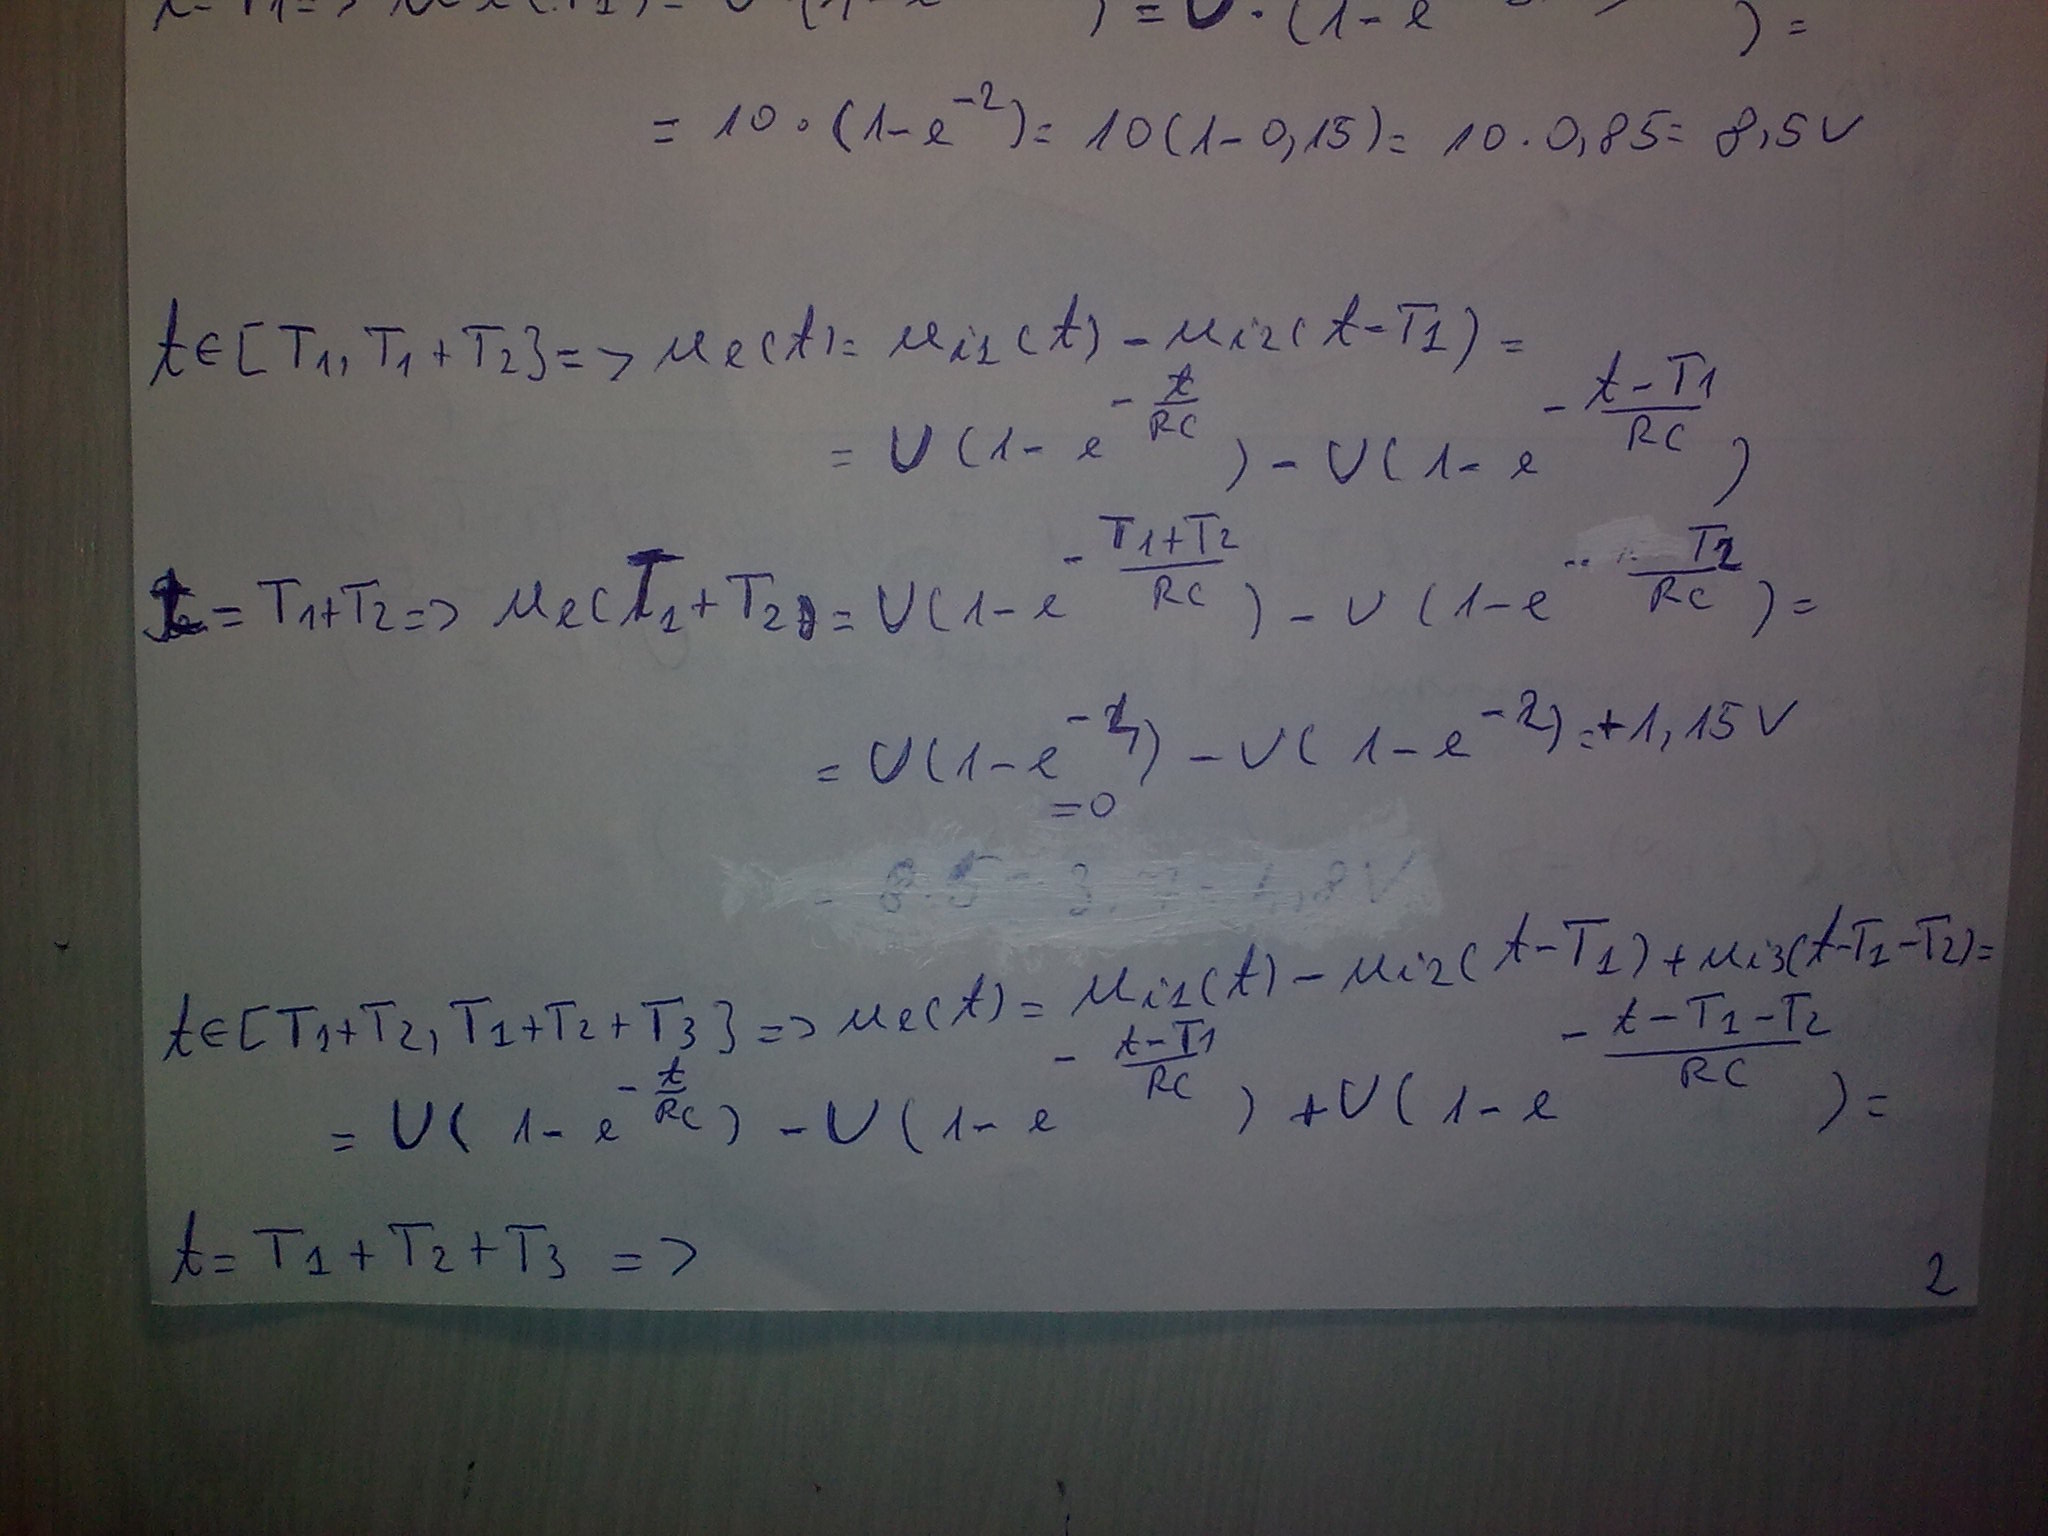 ) = U · (1 - e ) =
= 10 · (1 - e^-2) = 10(1 - 0,15) = 10 . 0,85 = 8,5V
t ∈ [T1, T1 + T2] => ue(t) = ui1(t) - ui2(t - T1) =
= U(1 - e^-t/RC) - U(1 - e^-(t-T1)/RC)
t = T1+T2 => ue(T1 + T2) = U(1 - e^-(T1+T2)/RC) - U(1 - e^-T2/RC) =
= U(1 - e ) - U(1 - e^-2) = +1,15V
= 0
t ∈ [T1+T2, T1+T2+T3] => ue(t) = ui1(t) - ui2(t - T1) + ui3(t-T1-T2) =
= U(1 - e^-t/RC) - U(1 - e^-(t-T1)/RC) + U(1 - e^-(t-T1-T2)/RC) =
t = T1 + T2 + T3 =>
2